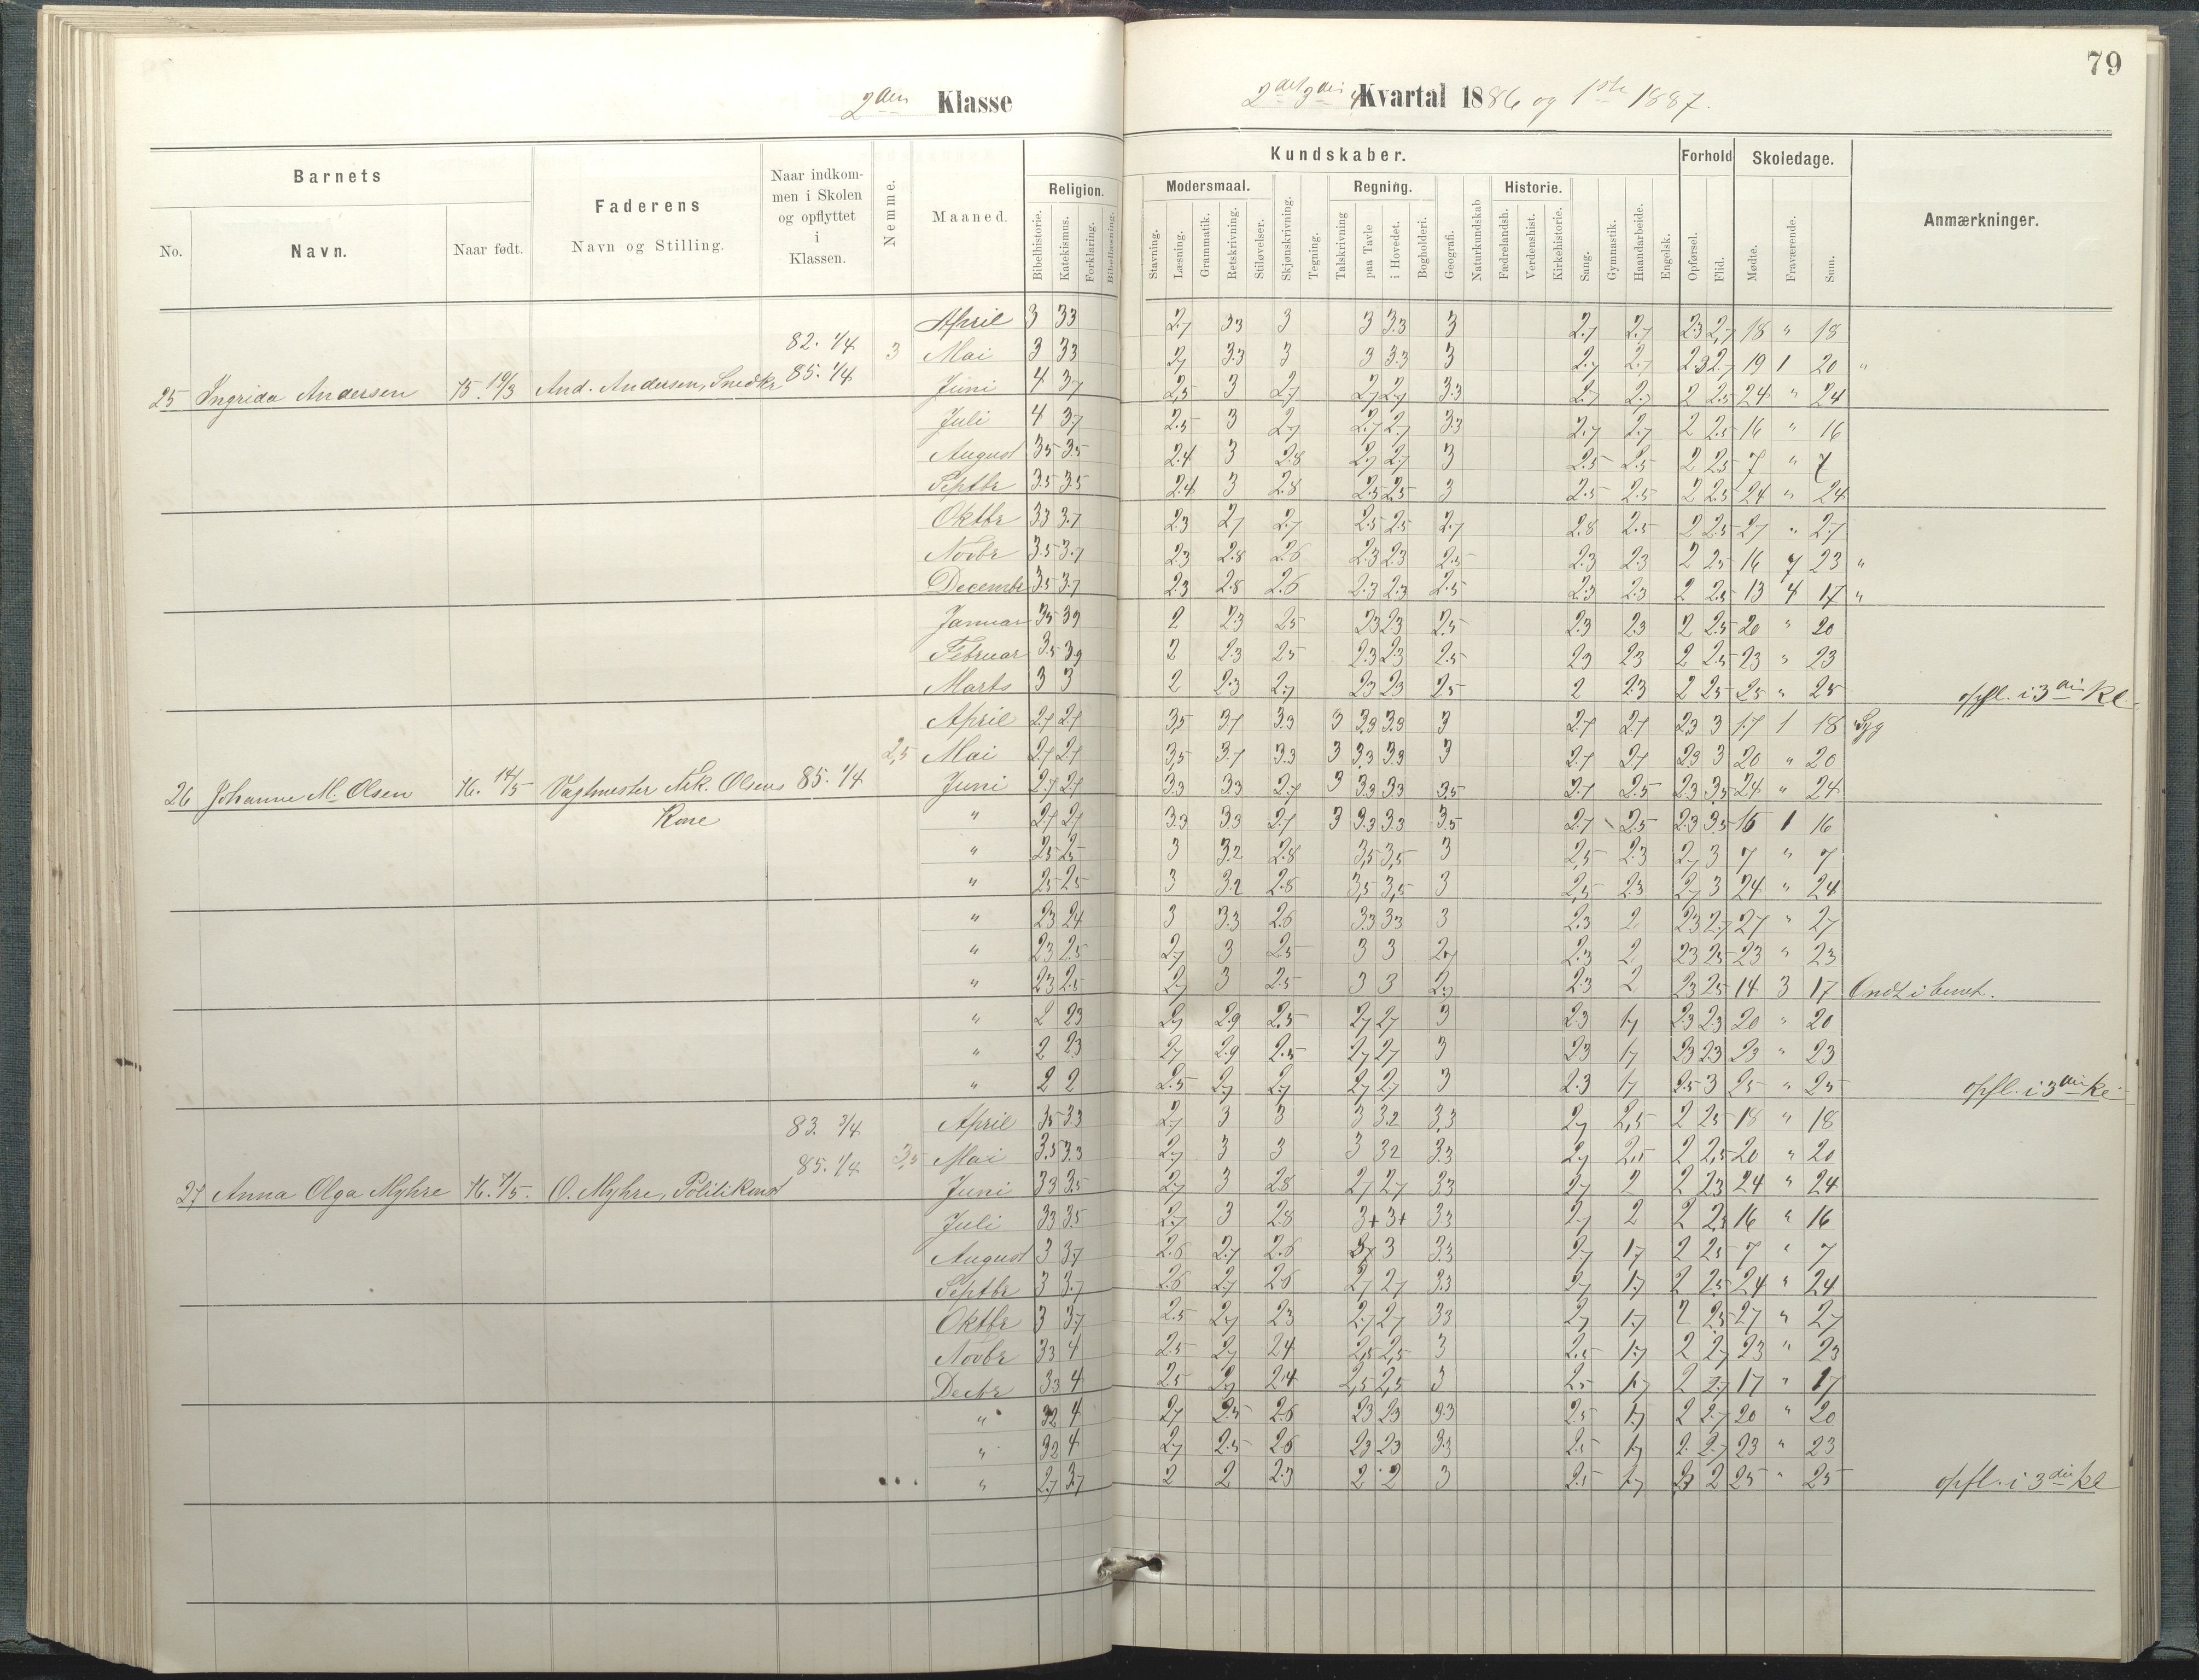 79
2den Klasse
2det 3die 4 Kvartal 1886 og 1ste 1887.
Barnets
No.
Navn.
Naar født.
Faderens
Navn og Stilling.
Naar indkom-
men i Skolen
og opflyttet
i
Klassen.
Nemme.
Maaned.
Kundskaber.
Religion.
Bibelhistorie.
Katekismus.
Forklaring.
Bibellæsning.
Modersmaal.
Stavning.
Læsning.
Grammatik.
Retskrivning.
Stiløvelser.
Skjønskrivning.
Tegning.
Regning.
Talskrivning
paa Tavle
i Hovedet.
Bogholderi.
Geografi.
Naturkundskab
Historie.
Fædrelandsh.
Verdenshist.
Kirkehistorie.
Sang.
Gymnastik.
Haandarbeide.
Engelsk.
Forhold
Opførsel.
Flid.
Skoledage.
Mødte.
Fraværende.
Sum.
Anmærkninger.
82. 1/4 3
85. 1/4
25 Ingrida Andersen 75. 19/3 And. Andersen, Snedkr
April 3 33 2.7 33 3 3 3.3 3 2.7 2.7 23 2,7 18 " 18
Mai 3 33 2.7 3.3 3 3 3.3 3 2.7 2.7 2.3 2.7 19 1 20 "
Juni 4 37 2,5 3 2.7 2.7 2.7 3.3 2.7 2.7 2 2.5 24 " 24
Juli 4 37 2.5 3 2.7 2.7 2.7 3.3 2.7 2.7 2 2.5 16 " 16
August 35 3.5 2.4 3 2.8 2.7 2.7 3 2.5 2.5 2 25 7 " 7
Septbr 3.5 3.5 2.4 3 2.8 2.5 2.5 3 2.5 2.5 2 2.5 24 " 24
Oktbr 33 3.7 2.3 2.7 2.7 2.5 2.5 2.7 2.8 2.5 2 2.5 27 " 27
Novbr 3.5 3.7 2.3 2.8 2.6 2.3 2.3 2.5 2.3 2.3 2 25 16 7 23 "
Decembr 3.5 3.7 23 2.8 2.6 2.3 2.3 2.5 2.3 2.3 2 2.5 13 4 17 "
Januar 35 39 2 2.3 25 23 23 2,5 2.3 2.3 2 2.5 20 " 20
Februar 3.5 3.9 2 2.3 25 2.3 23 2.5 23 23 2 2.5 23 " 23
Marts 3 3 2 2.3 2.7 23 23 25 2 2.3 2 25 25 " 25 opfl. i 3die Kl.
26 Johanne M. Olsen 76. 14/5 Vagtmester Olsens 85. 1/4 2,5
Kone
April 2.7 2.7 3,5 3.7 3.3 3 3.3 3.3 3 2.7 2.7 23 3 17 1 18 Syg
Mai 2.7 2.7 3,5 3.7 3.3 3 3.3 3.3 3 2.7 2.7 23 3 20 " 20
Juni 2.7 2.7 3.3 3.3 2.7 3 3.3 33 3.5 2.7 2.5 23 3.5 24 " 24
" 2.7 2.7 3.3 33 2.7 3 3.3 3.3 3.5 2.7 2.5 2.3 3.5 15 1 16
" 2.5 2.5 3 3.2 2.8 3,5 3,5 3 2,5 2.3 2.7 3 7 " 7
" 2.5 2.5 3 3.2 2.8 3,5 3,5 3 2,5 2.3 2.7 3 24 " 24
" 23 24 3 3.3 2.6 3.3 33 3 2.3 2 23 2.7 27 " 27
" 23 2.5 2.7 3 2.5 3 3 2.7 2.3 2 23 25 23 " 23
" 23 2.5 2.7 3 2.5 3 3 2.7 2.3 2 23 25 14 3 17 Ondt i benet.
" 2 23 2.7 2.9 2,5 2.7 2.7 3 2.3 1.7 2.3 2.3 20 " 20
" 2 2.3 2.7 2.9 2.5 2.7 2.7 3 23 1.7 23 2.3 23 " 23
" 2 2 2.5 2.7 2.7 2.7 2.7 3 2.3 1.7 2.5 3 25 " 25 opfl. i 3die kl
83. 3/4
85. 1/4 3,5
27 Anna Olga Myhre 76. 7/5. O. Myhre, Politikonst
April 35 3.3 2.7 3 3 3 3.2 3,3 2.7 2,5 2 25 18 " 18
Mai 3.5 3.3 2.7 3 3 3 32 3.3 2.7 2,5 2 2,5 20 " 20
Juni 33 3.5 2.7 3 28 2.7 2.7 3.3 2.7 2 2 23 24 " 24
Juli 33 3.5 2.7 3 2.8 3+ 3+ 3.3 2.7 2 2 2,3 16 " 16
August 3 3.7 2.6 2.7 2.6 3 3.3 2.7 1.7 2 25 7 " 7
Septbr 3 3.7 2.6 2.7 2.6 2.7 2.7 3.3 2.7 1.7 2 2.5 24 " 24
Oktbr 3 3.7 2.5 2.7 23 2.7 2.7 33 2.7 1.7 2 25 27 " 27
Novbr 33 4 2.5 2.7 24 2,5 2,5 3 2.5 1.7 2 2.7 23 " 23
Decbr 33 4 25 2.7 24 2,5 2,5 3 2.5 1.7 2 2.7 17 " 17
" 32 4 2.7 2.5 2.6 23 23 3.3 2.5 1.7 2 2.7 20 " 20
" 32 4 2.7 2.5 26 23 23 3.3 2.5 1.7 2 2.7 23 " 23
" 2.7 3.7 2 2 2.3 2 2 3 2.5 1.7 2 25 " 25 opfl. i 3die kl